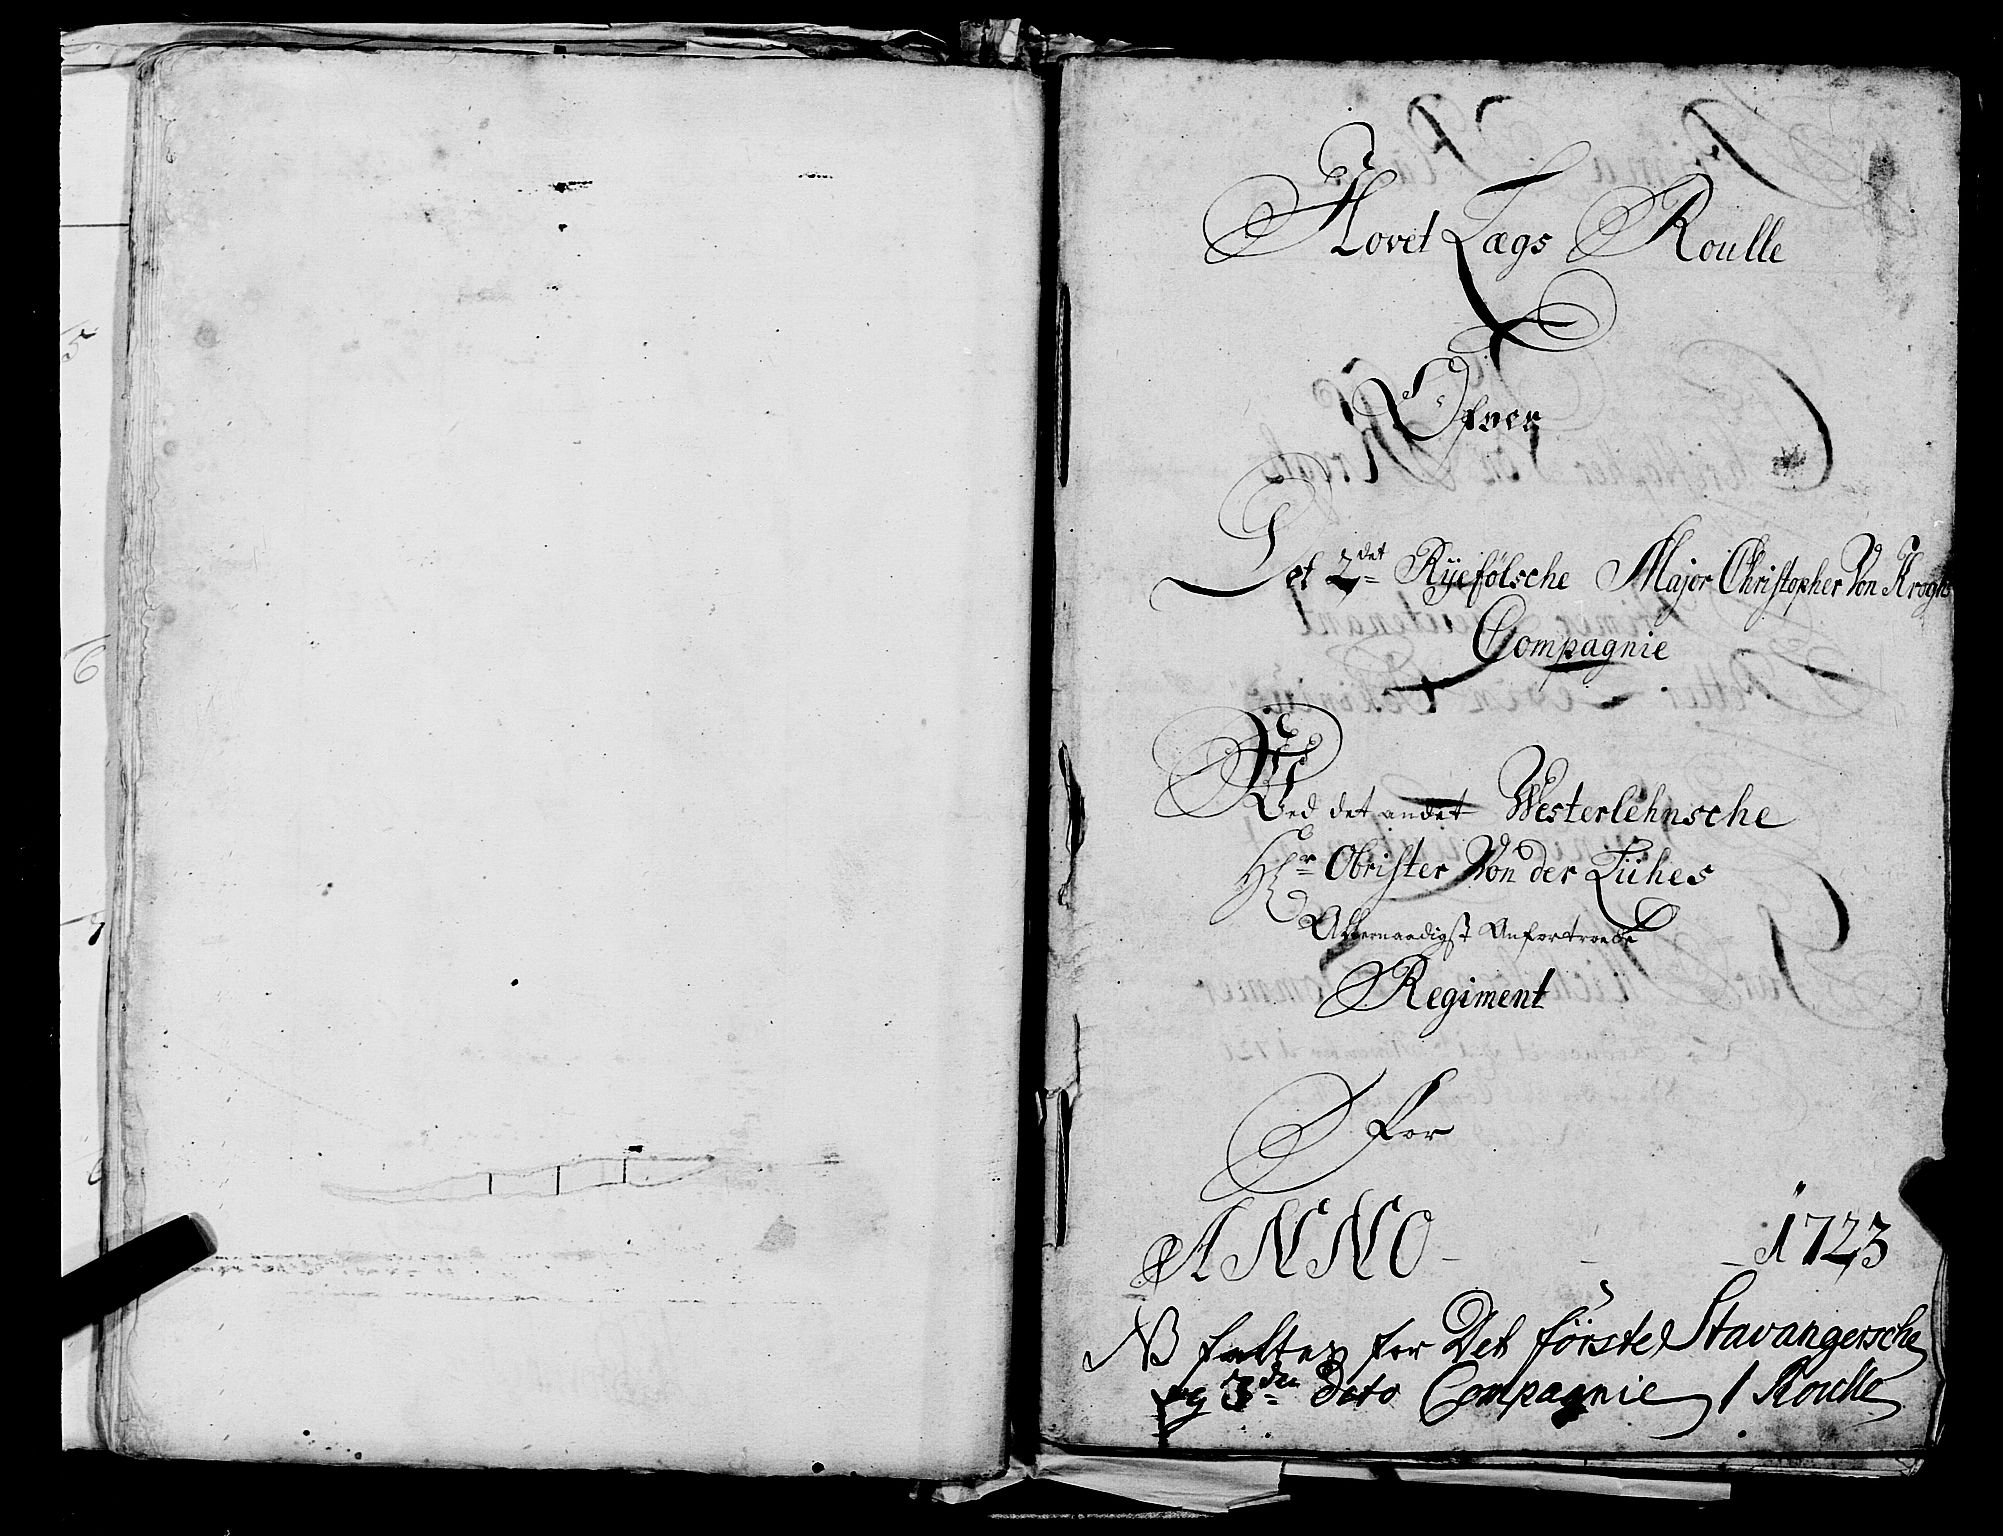 Hovet Lægs Roulle
Ofver
Det 2det Ryefölsche Major Christopher Von Kroghs
Compagnie
Ved det andet Westerlehnsche
Hr Obrister Von der Lühes
Allernaadigst Anfortroede
Regiment
For
ANNO - - - 1723
NB for Det förste Stavangersche
og 3die Dito Compagnie 1 Roulle
5
6
7